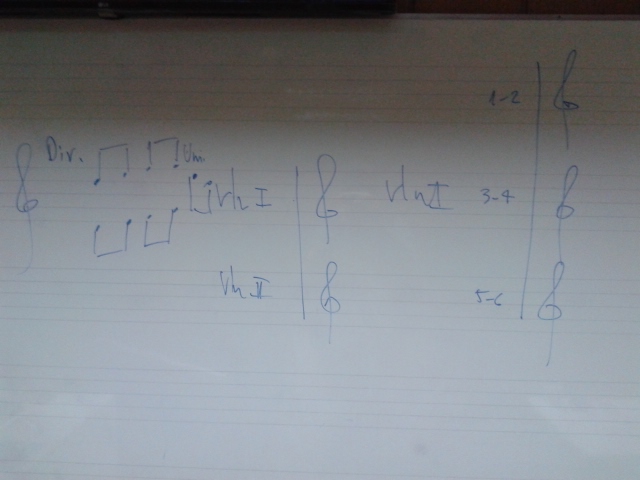 Div.
Vln I
Vln II
Vln I
1-2
3-4
5-6